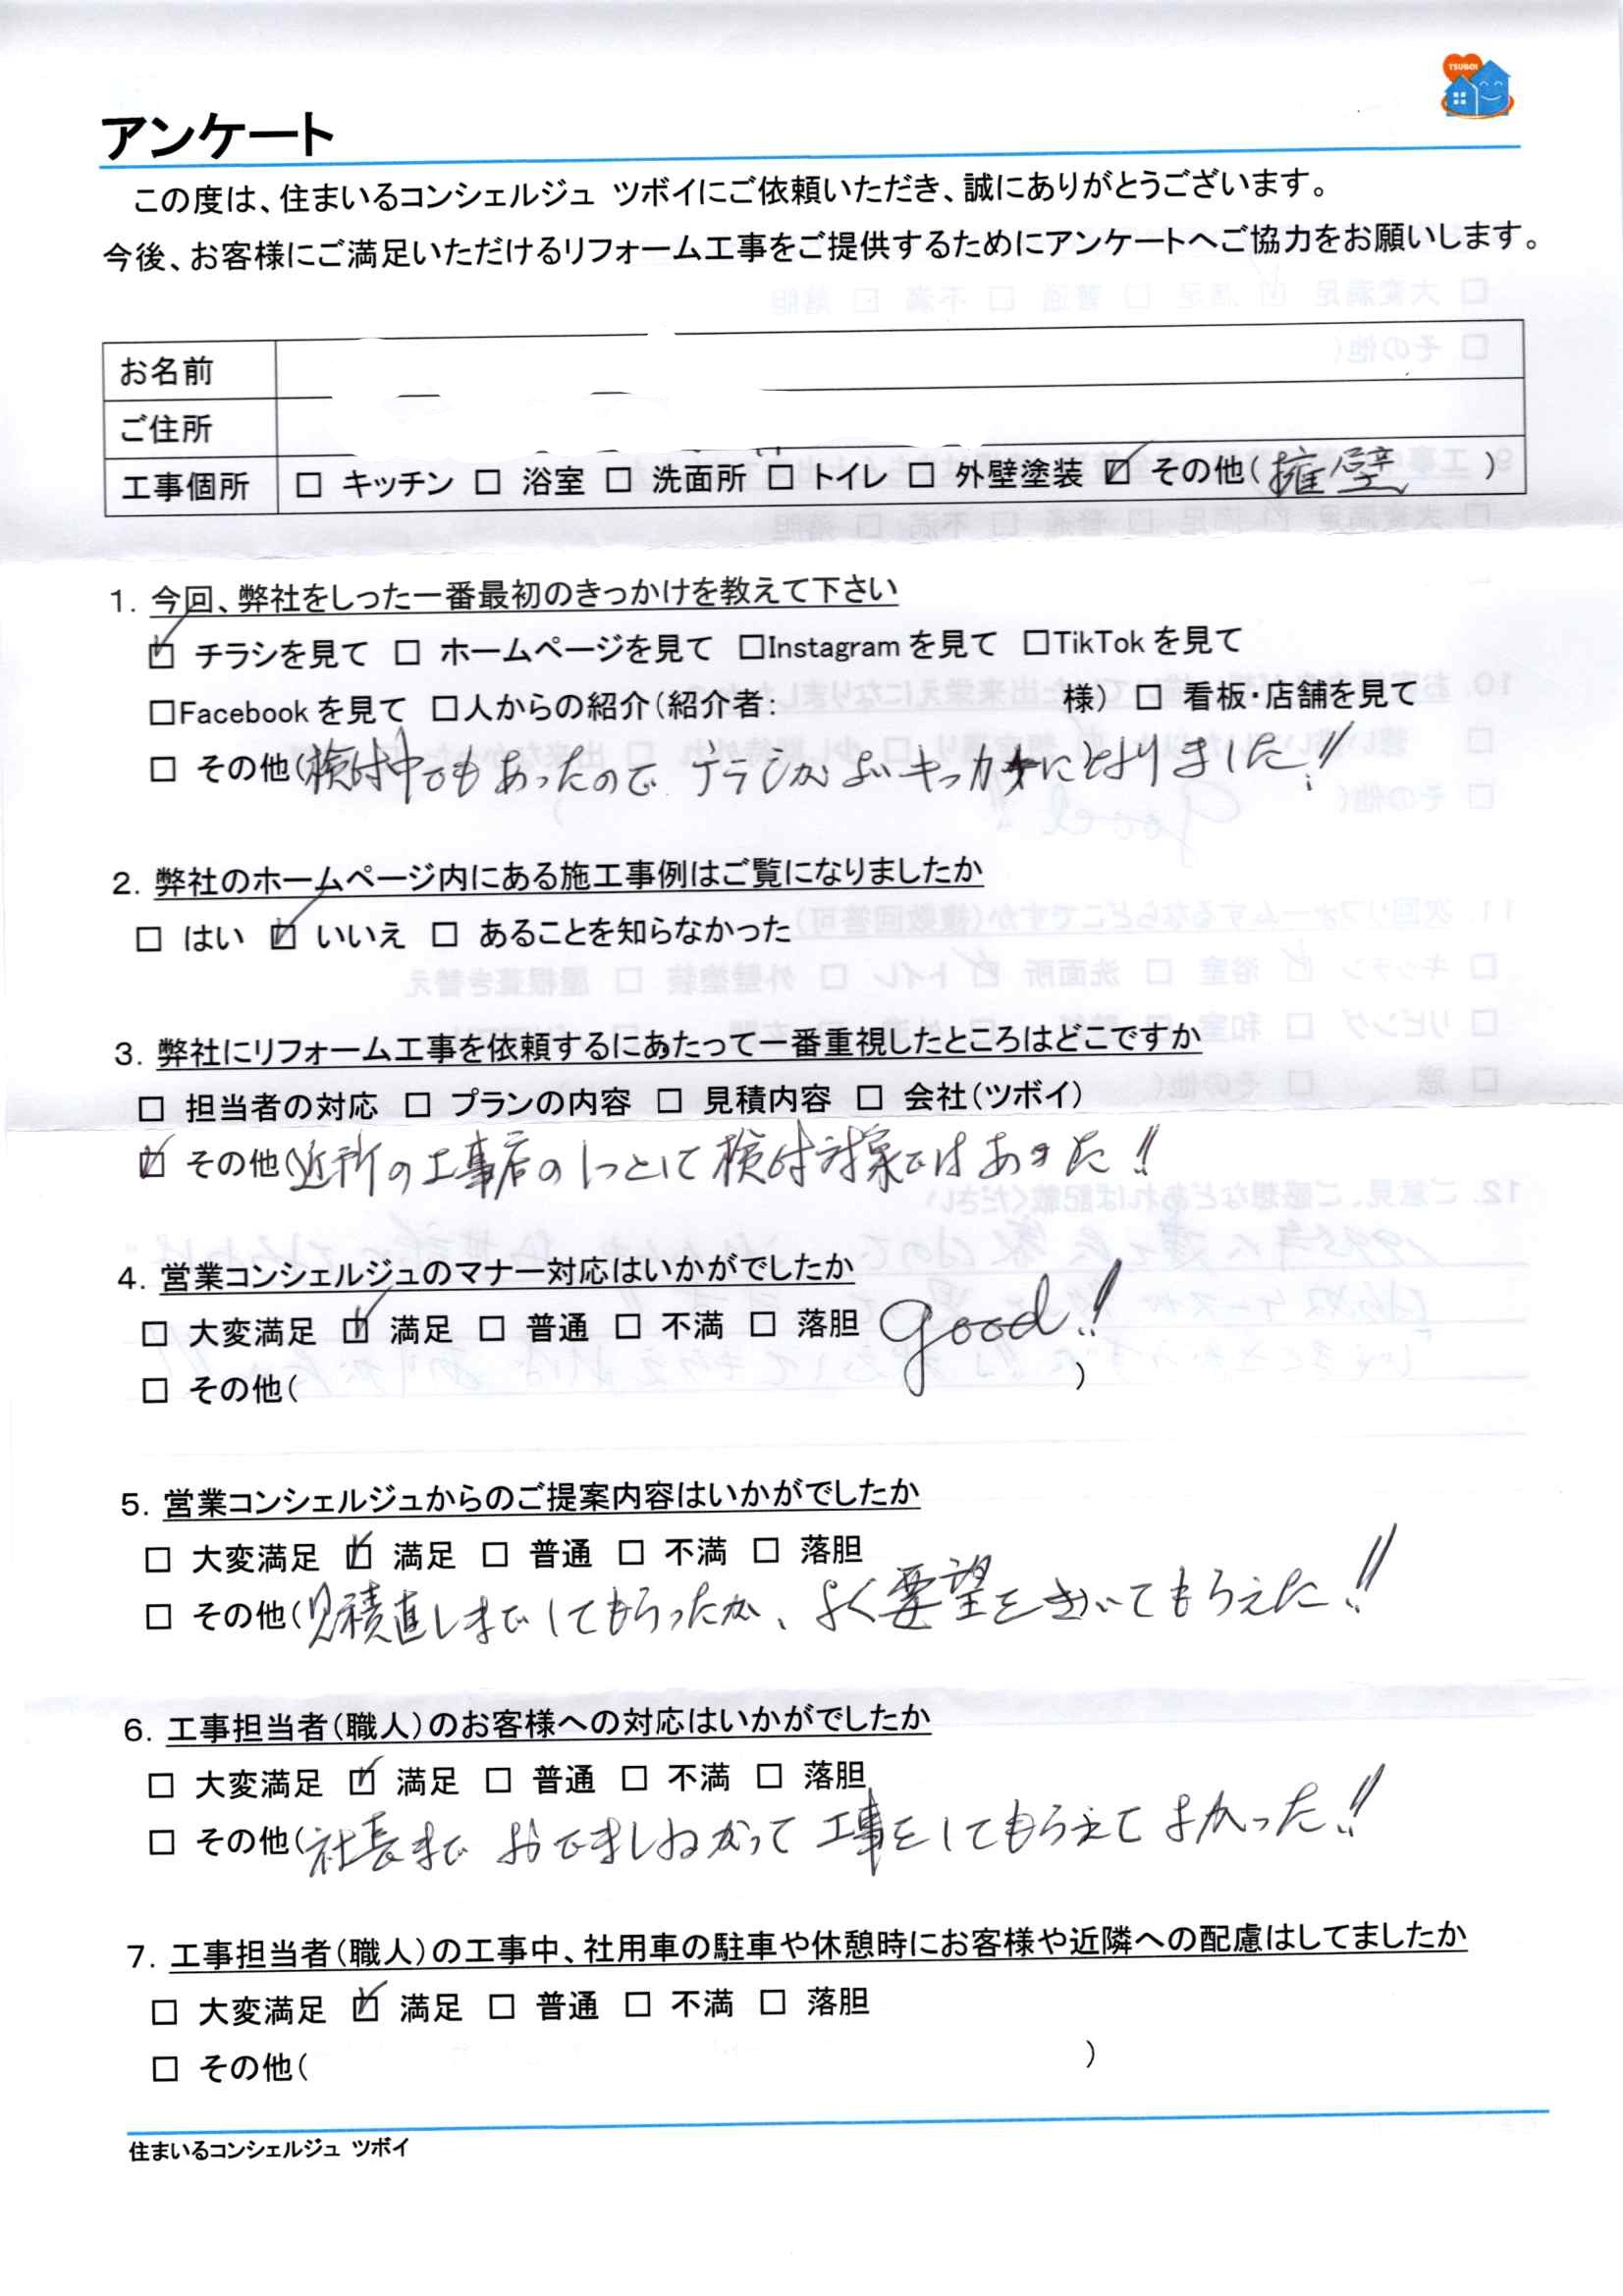 TSUBOI
アンケート
この度は、住まいるコンシェルジュ ツボイにご依頼いただき、誠にありがとうございます。
今後、お客様にご満足いただけるリフォーム工事をご提供するためにアンケートへご協力をお願いします。
お名前
ご住所
工事個所 □ キッチン □ 浴室 □ 洗面所 □ トイレ □ 外壁塗装 ☑ その他(擁壁)
1. 今回、弊社をしった一番最初のきっかけを教えて下さい
☑ チラシを見て □ ホームページを見て □Instagramを見て □TikTokを見て
□Facebookを見て □人からの紹介(紹介者: 様) □ 看板・店舗を見て
□ その他(検討中でもあったので チラシがよいキッカケになりました!!
2. 弊社のホームページ内にある施工事例はご覧になりましたか
□ はい ☑ いいえ □ あることを知らなかった
3. 弊社にリフォーム工事を依頼するにあたって一番重視したところはどこですか
□ 担当者の対応 □ プランの内容 □ 見積内容 □ 会社(ツボイ)
☑ その他(近所の工事店の1つとして検討対象ではあった!!
4. 営業コンシェルジュのマナー対応はいかがでしたか
□ 大変満足 ☑ 満足 □ 普通 □ 不満 □ 落胆 good!!
□ その他( )
5. 営業コンシェルジュからのご提案内容はいかがでしたか
□ 大変満足 ☑ 満足 □ 普通 □ 不満 □ 落胆
□ その他(見積直しまでしてもらったが、よく要望をきいてもらえた!!
6. 工事担当者(職人)のお客様への対応はいかがでしたか
□ 大変満足 ☑ 満足 □ 普通 □ 不満 □ 落胆
□ その他(社長まで おでましねがって 工事をしてもらえて よかった!!
7. 工事担当者(職人)の工事中、社用車の駐車や休憩時にお客様や近隣への配慮はしてましたか
□ 大変満足 ☑ 満足 □ 普通 □ 不満 □ 落胆
□ その他( )
住まいるコンシェルジュ ツボイ